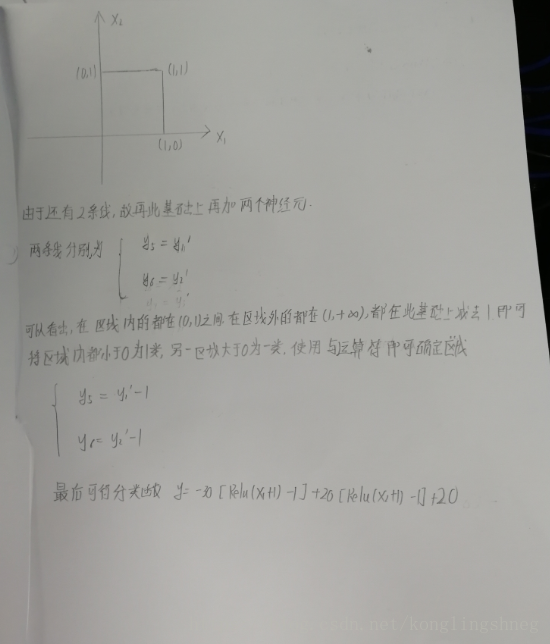 X₂
(0,1)
(1,1)
X₁
(1,0)
由于还有2条线,故再此基础上再加两个神经元.
两条线分别为
y₅ = y₁'
y₆ = y₂'
可以看出,在区域内的都在(0,1)之间 在区域外的都在(1,+∞),都在此基础上减去1即可
将区域内都小于0为1类,另一区域大于0为一类,使用与运算符即可确定区域
y₅ = y₁'-1
y₆= y₂'-1
最后可得分类函数 y= -30 [Relu(x₁+1) -1]+20 [Relu(x₂+1) -1]+20